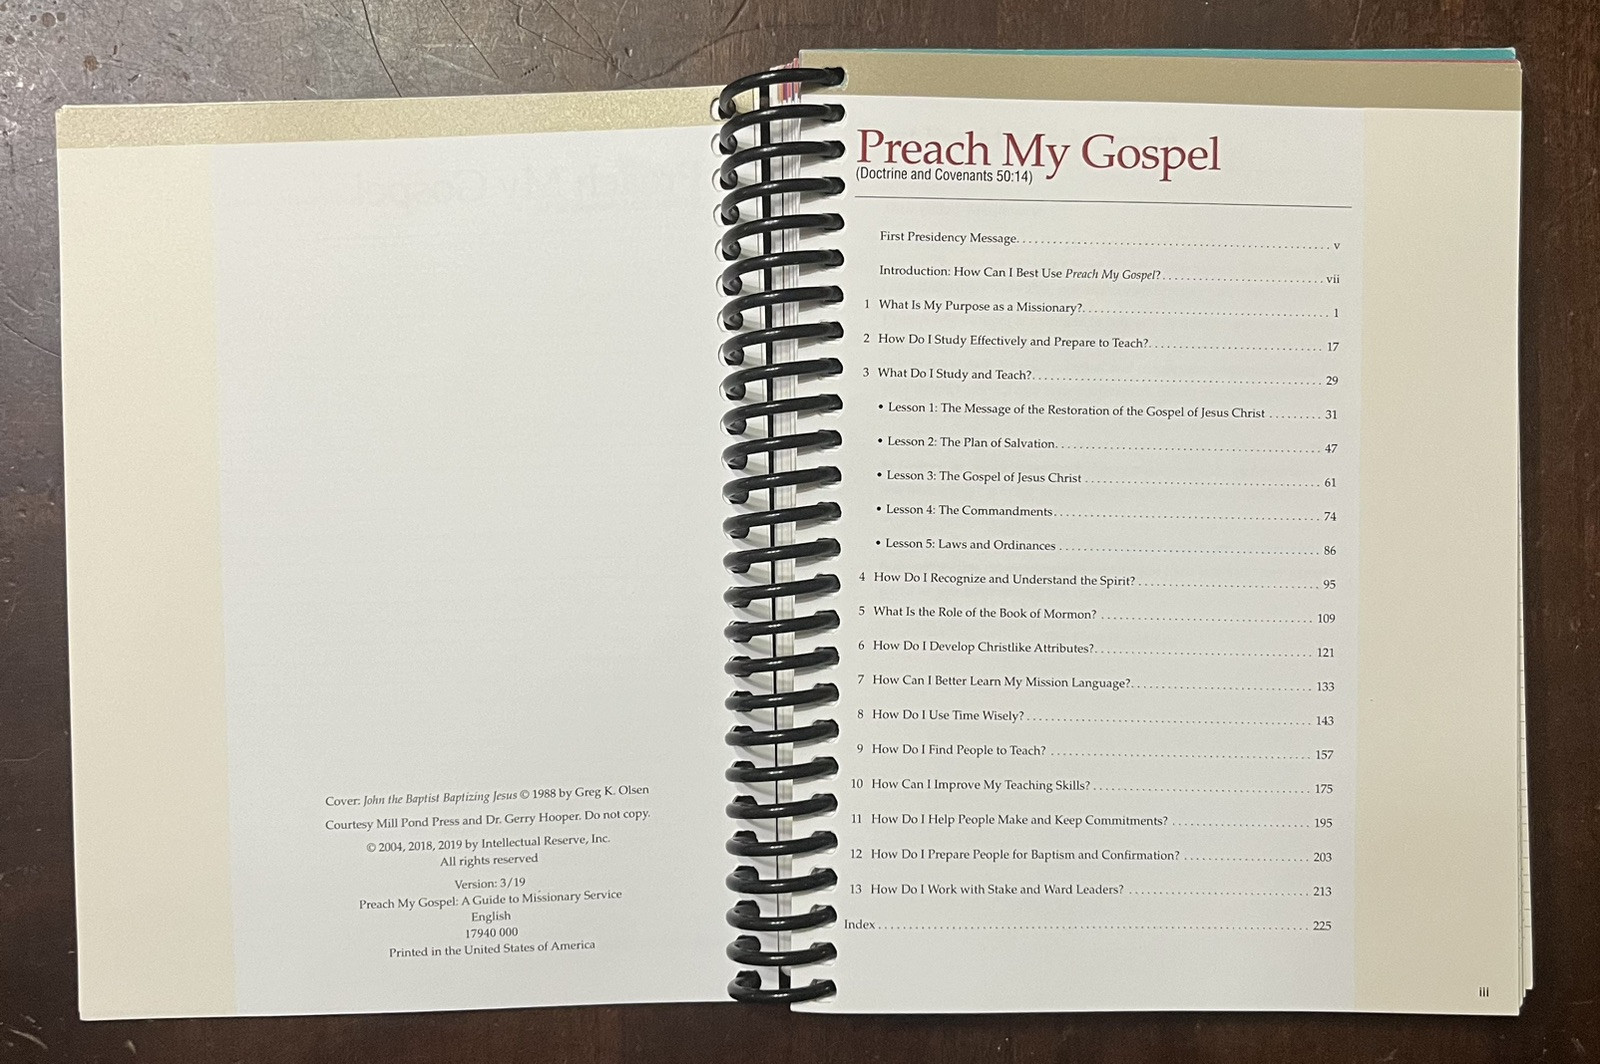 Cover: John the Baptist Baptizing Jesus © 1988 by Greg K. Olsen
Courtesy Mill Pond Press and Dr. Gerry Hooper. Do not copy.
© 2004, 2018, 2019 by Intellectual Reserve, Inc.
All rights reserved
Version: 3/19
Preach My Gospel: A Guide to Missionary Service
English
17940 000
Printed in the United States of America
Preach My Gospel
(Doctrine and Covenants 50:14)
First Presidency Message. . . . . . . . . . . . . . . . . . . . v
Introduction: How Can I Best Use Preach My Gospel? . . . . . . . . . . vii
1 What Is My Purpose as a Missionary?. . . . . . . . . . 1
2 How Do I Study Effectively and Prepare to Teach?. . . . . . . . . . 17
3 What Do I Study and Teach?. . . . . . . . . . 29
• Lesson 1: The Message of the Restoration of the Gospel of Jesus Christ . . . . . . . . . 31
• Lesson 2: The Plan of Salvation. . . . . . . . . . 47
• Lesson 3: The Gospel of Jesus Christ . . . . . . . . . . 61
• Lesson 4: The Commandments. . . . . . . . . . 74
• Lesson 5: Laws and Ordinances . . . . . . . . . . 86
4 How Do I Recognize and Understand the Spirit? . . . . . . . . . . 95
5 What Is the Role of the Book of Mormon? . . . . . . . . . . 109
6 How Do I Develop Christlike Attributes?. . . . . . . . . . 121
7 How Can I Better Learn My Mission Language?. . . . . . . . . . 133
8 How Do I Use Time Wisely? . . . . . . . . . . 143
9 How Do I Find People to Teach? . . . . . . . . . . 157
10 How Can I Improve My Teaching Skills? . . . . . . . . . . 175
11 How Do I Help People Make and Keep Commitments? . . . . . . . . . . 195
12 How Do I Prepare People for Baptism and Confirmation? . . . . . . . . . . 203
13 How Do I Work with Stake and Ward Leaders? . . . . . . . . . . 213
Index . . . . . . . . . . 225
iii